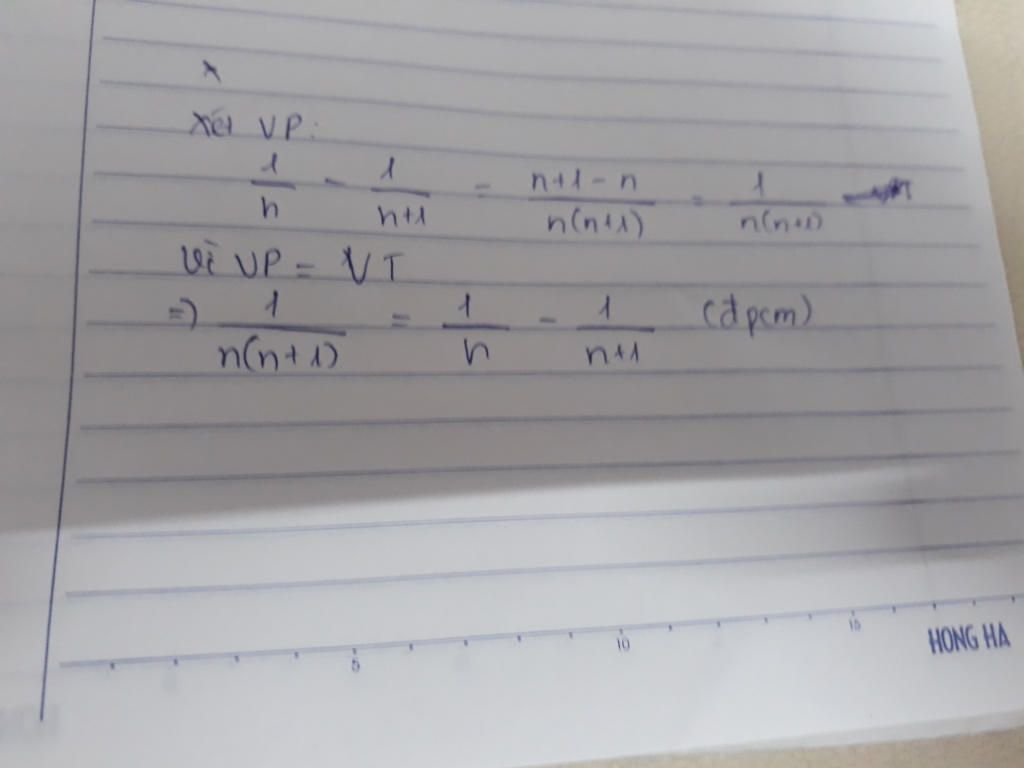 x
Xét VP:
1/n - 1/(n+1) = (n+1-n)/(n(n+1)) = 1/(n(n+1))
Vì VP = VT
=> 1/(n(n+1)) = 1/n - 1/(n+1) (đpcm)
5 10 15
HONG HA